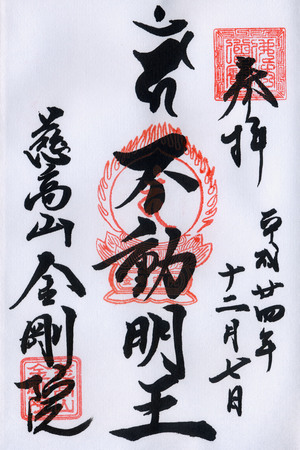 奉拝
平成廿四年
十二月七日
不動明王
慈高山 金剛院